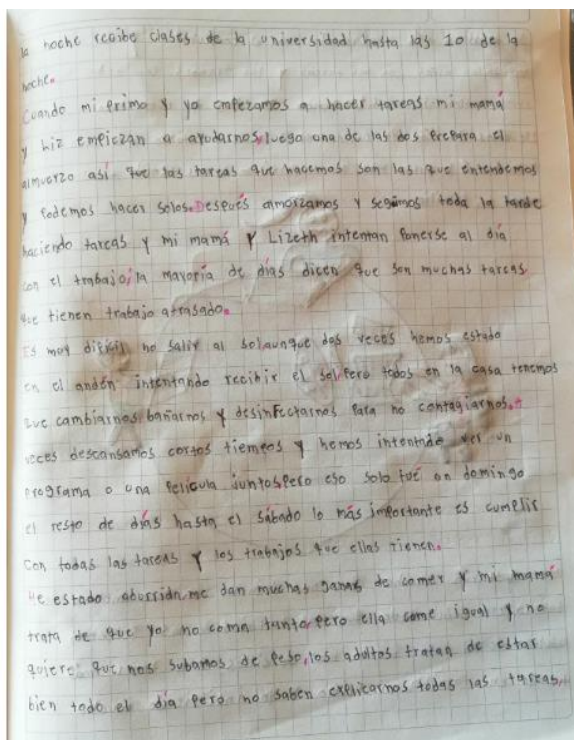 la noche recibe clases de la universidad hasta las 10 de la
noche.
Cuando mi primo y yo empezamos a hacer tareas mi mamá
y Liz empiezan a ayudarnos, luego una de las dos prepara el
almuerzo así que las tareas que hacemos son las que entendemos
y podemos hacer solos. Después almorzamos y seguimos toda la tarde
haciendo tareas y mi mamá y Lizeth intentan ponerse al día
con el trabajo, la mayoría de días dicen que son muchas tareas.
que tienen trabajo atrasado.
Es muy dificil no salir al sol, aunque dos veces hemos estado
en el andén intentando recibir el sol, pero todos en la casa tenemos
que cambiarnos, bañarnos y desinfectarnos para no contagiarnos. A
veces descansamos cortos tiempos y hemos intentado ver un
programa o una pelicula juntos, pero eso solo fué un domingo
el resto de días hasta el sábado lo más importante es cumplir
con todas las tareas y los trabajos que ellas tienen.
He estado aburrido, me dan muchas ganas de comer y mi mamá
trata de que yo no coma tanto, pero ella come igual y no
quiere que nos subamos de peso, los adultos tratan de estar
bien todo el día pero no saben explicarnos todas las tareas,